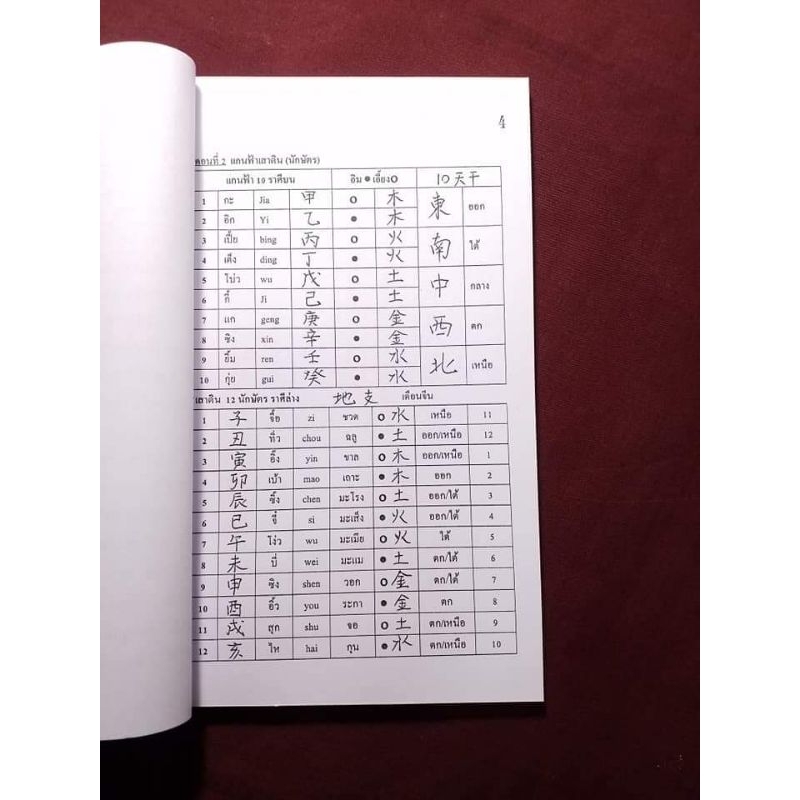 4
ตอนที่ 2 แกนฟ้าเสาดิน (นักษัตร)
แกนฟ้า 10 ราศีบน อิม ● เอี้ยง O 10 天干
1 กะ Jia 甲 O 木 東 ออก
2 อิก Yi 乙 ● 木
3 เปี้ย bing 丙 O 火 南 ใต้
4 เต็ง ding 丁 ● 火
5 โบ่ว wu 戊 O 土 中 กลาง
6 กี้ Ji 己 ● 土
7 แก geng 庚 O 金 西 ตก
8 ซิง xin 辛 ● 金
9 ยิ้ม ren 壬 O 水 北 เหนือ
10 กุ่ย gui 癸 ● 水
เสาดิน 12 นักษัตร ราศีล่าง 地支 เดือนจีน
1 子 จื้อ zi ชวด O 水 เหนือ 11
2 丑 ทิ่ว chou ฉลู ● 土 ออก/เหนือ 12
3 寅 อิ๊ง yin ขาล O 木 ออก/เหนือ 1
4 卯 เบ้า mao เถาะ ● 木 ออก 2
5 辰 ซิ้ง chen มะโรง O 土 ออก/ใต้ 3
6 已 จี๋ si มะเส็ง ● 火 ออก/ใต้ 4
7 午 โง่ว wu มะเมีย O 火 ใต้ 5
8 未 บี่ wei มะแม ● 土 ตก/ใต้ 6
9 申 ซิง shen วอก O 金 ตก/ใต้ 7
10 酉 อิ้ว you ระกา ● 金 ตก 8
11 戌 สุก shu จอ O 土 ตก/เหนือ 9
12 亥 ไห hai กุน ● 水 ตก/เหนือ 10